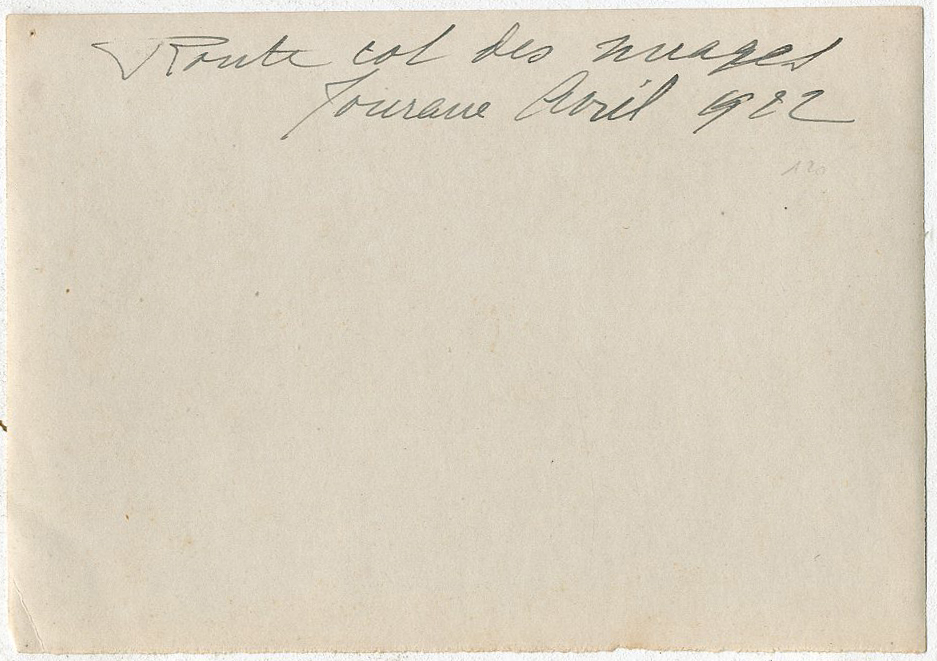 Route col des nuages
Tourane Avril 1922
120